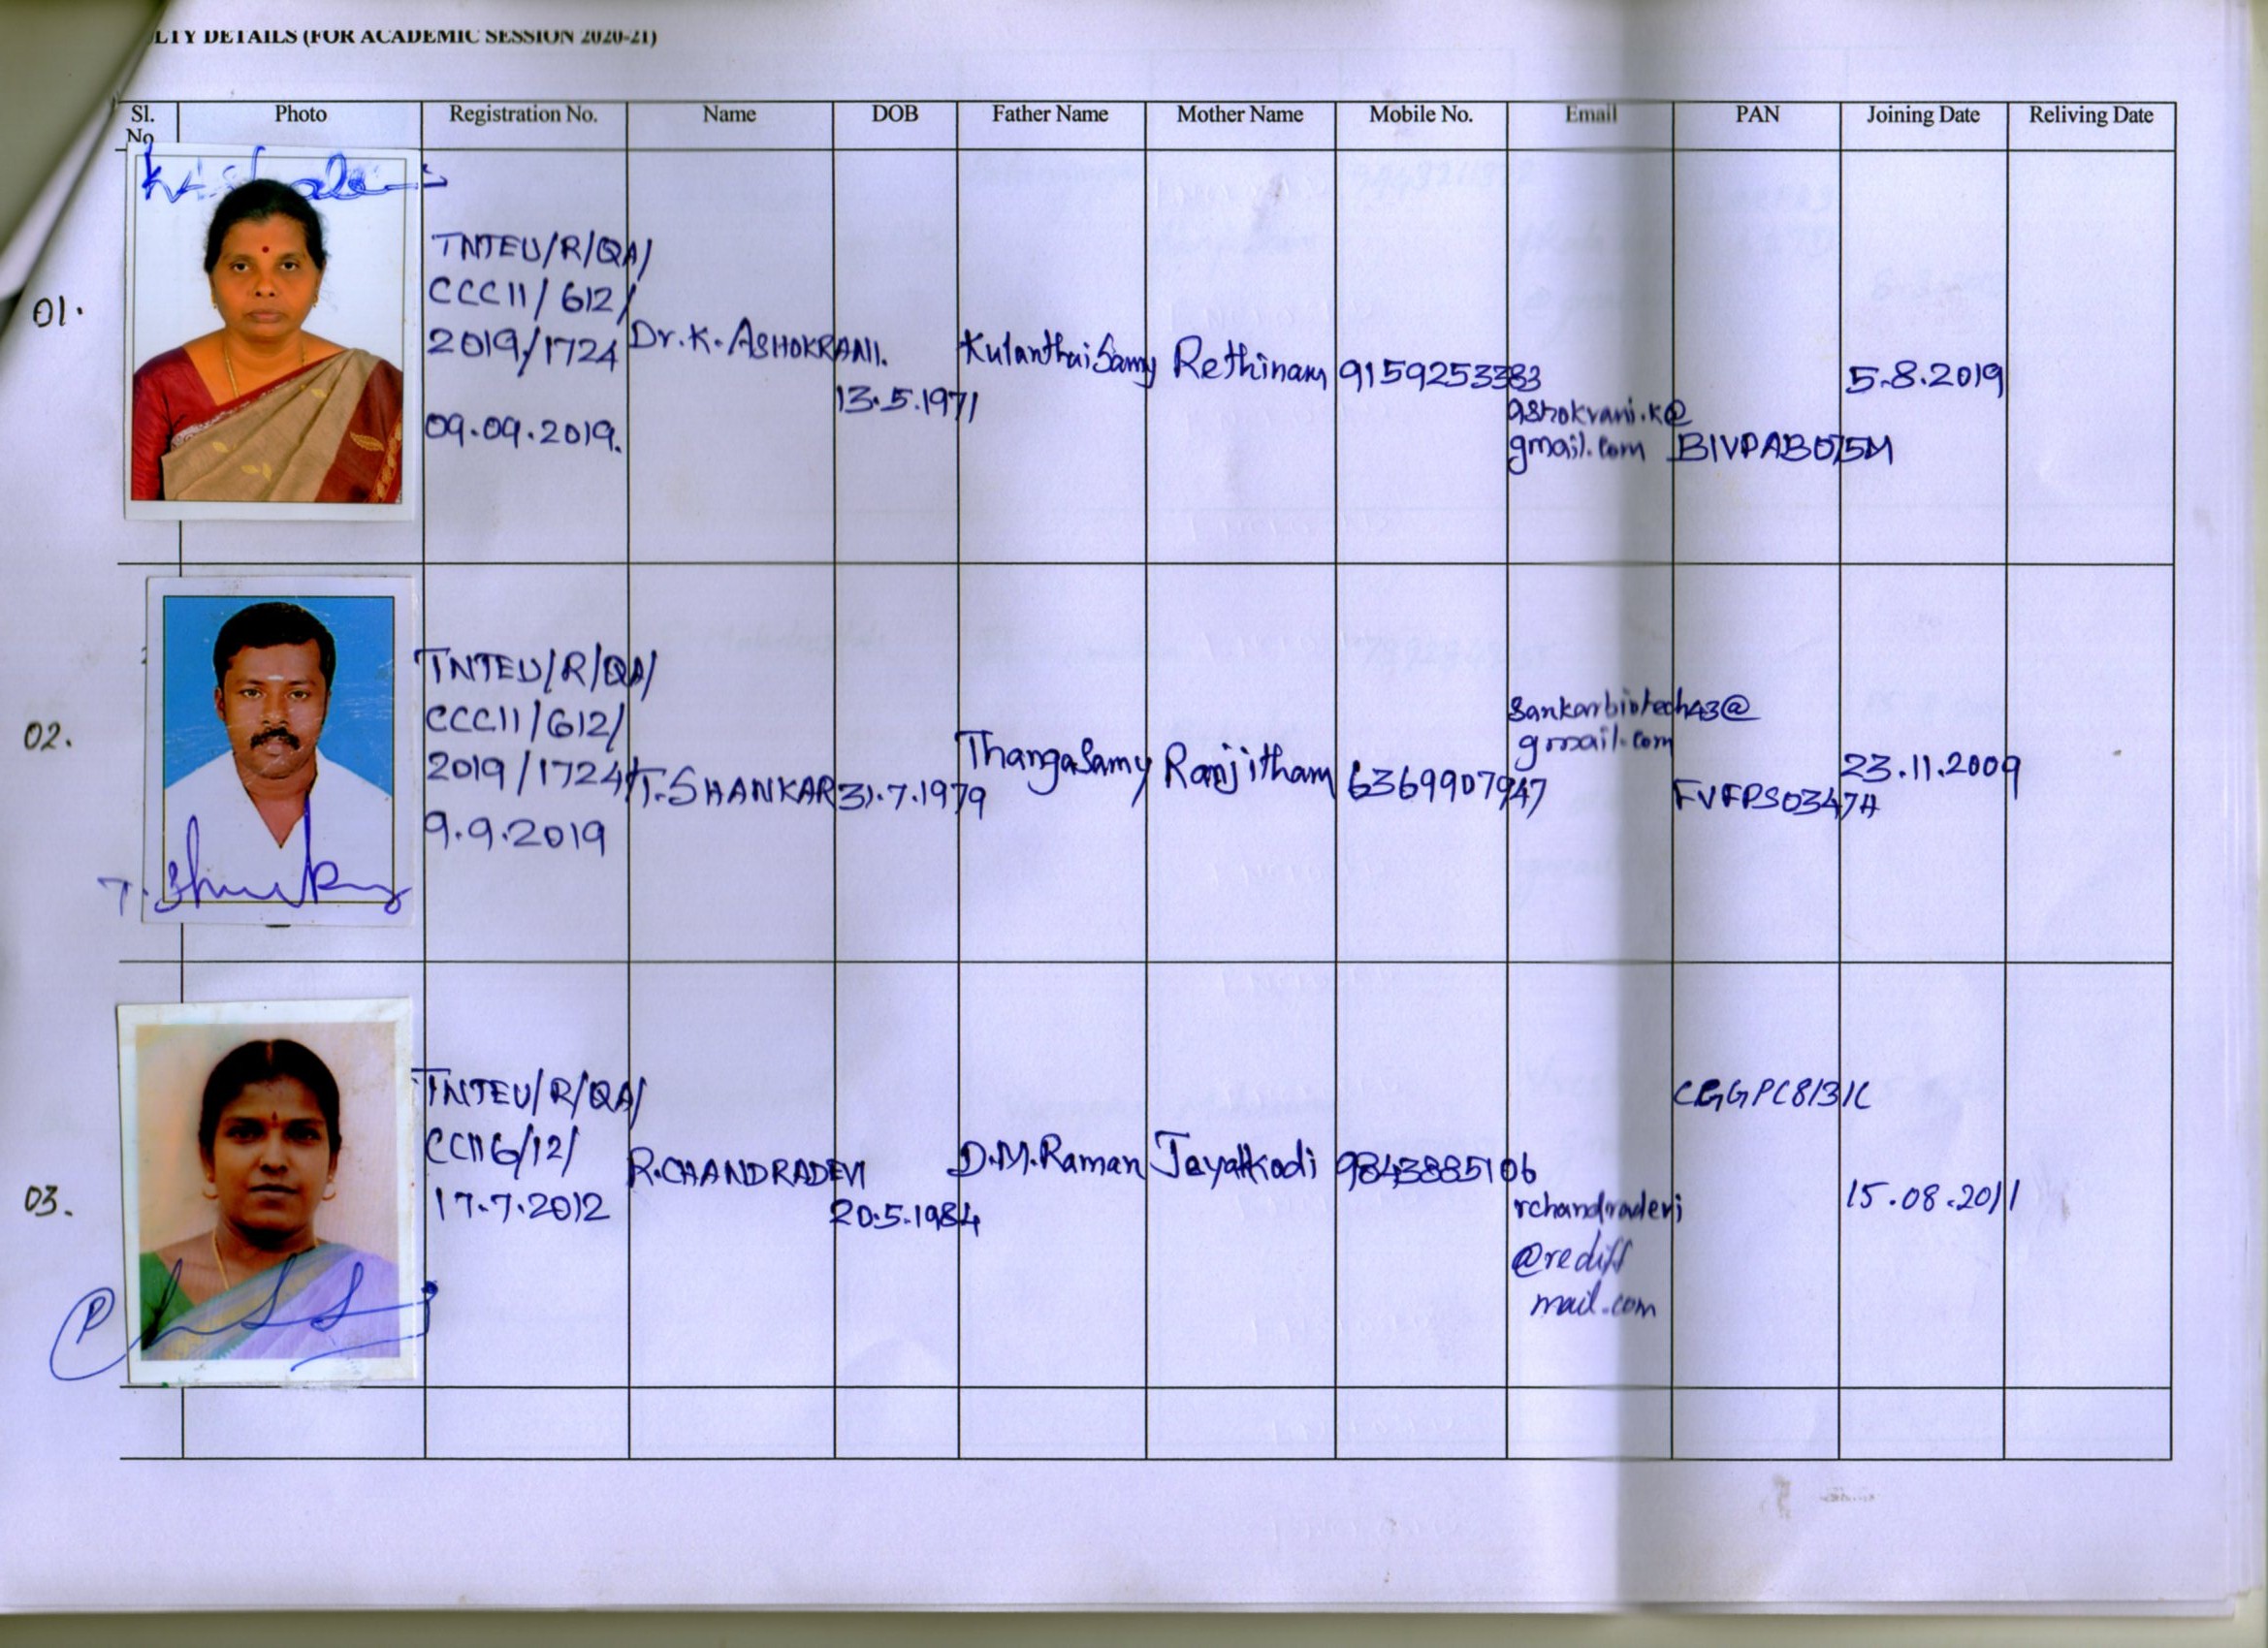 LTY DETAILS (FOR ACADEMIC SESSION 2020-21)
Sl. No Photo Registration No. Name DOB Father Name Mother Name Mobile No. Email PAN Joining Date Reliving Date
01.
TNTEU/R/QA/
CCC11/612/
2019/1724
09.09.2019.
Dr.K.ASHOKRANI.
13.5.1971
KulanthaiSamy
Rethinam
9159253383
ashokrani.k@
gmail.com
5.8.2019
02.
TNTEU/R/QA/
CCC11/612/
2019/1724
9.9.2019
T.SHANKAR
31.7.1979
ThangaSamy
Ranjitham
6369907947
Sankarbiotech43@
gmail.com
FVFPS0347A
23.11.2009
T.
03.
TNTEU/R/QA/
CC116/12/
17.7.2012
R.CHANDRADEVI
20.5.1984
D.M.Raman
9843885106
rchandradevi
@rediff
mail.com
15.08.2011